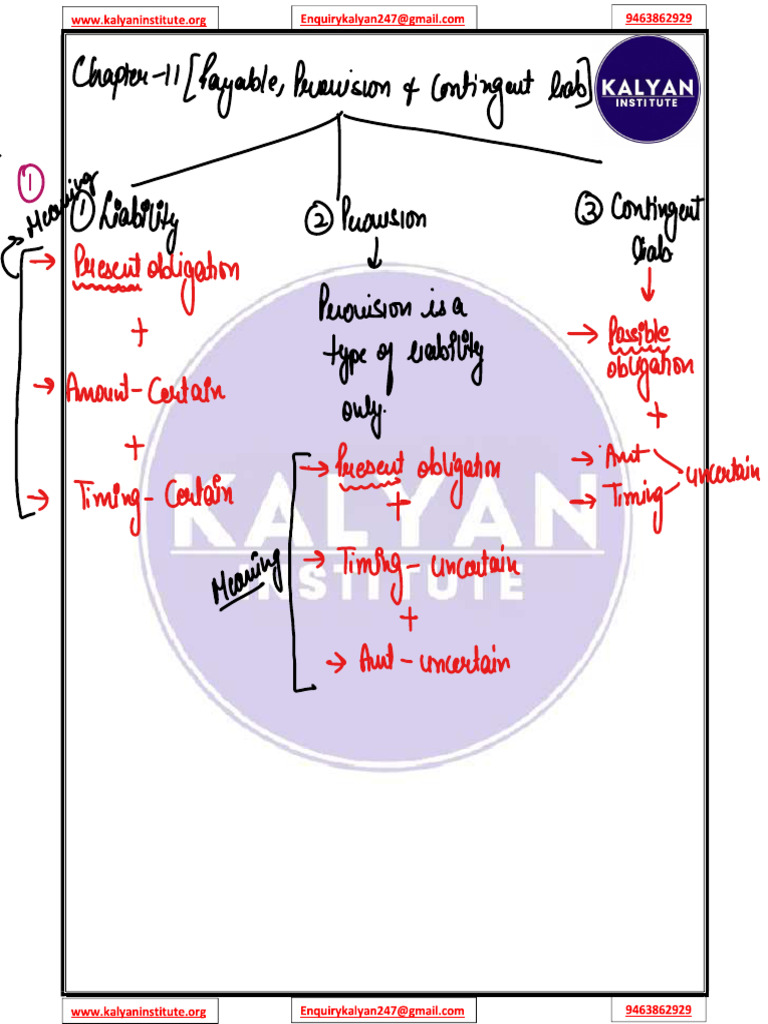 www.kalyaninstitute.org
Enquirykalyan247@gmail.com
9463862929
Chapter-11 [Payable, Provision & Contingent liab]
KALYAN
INSTITUTE
①
Meaning
① Liability
→ Present obligation
+
→ Amount - Certain
+
→ Timing - Certain
② Provision
↓
Provision is a
type of liability
only.
Meaning
→ Present obligation
+
→ Timing - uncertain
+
→ Amt - uncertain
③ Contingent
liab
↓
→ Possible
obligation
+
→ Amt
→ Timing
uncertain
KALYAN
INSTITUTE
www.kalyaninstitute.org
Enquirykalyan247@gmail.com
9463862929